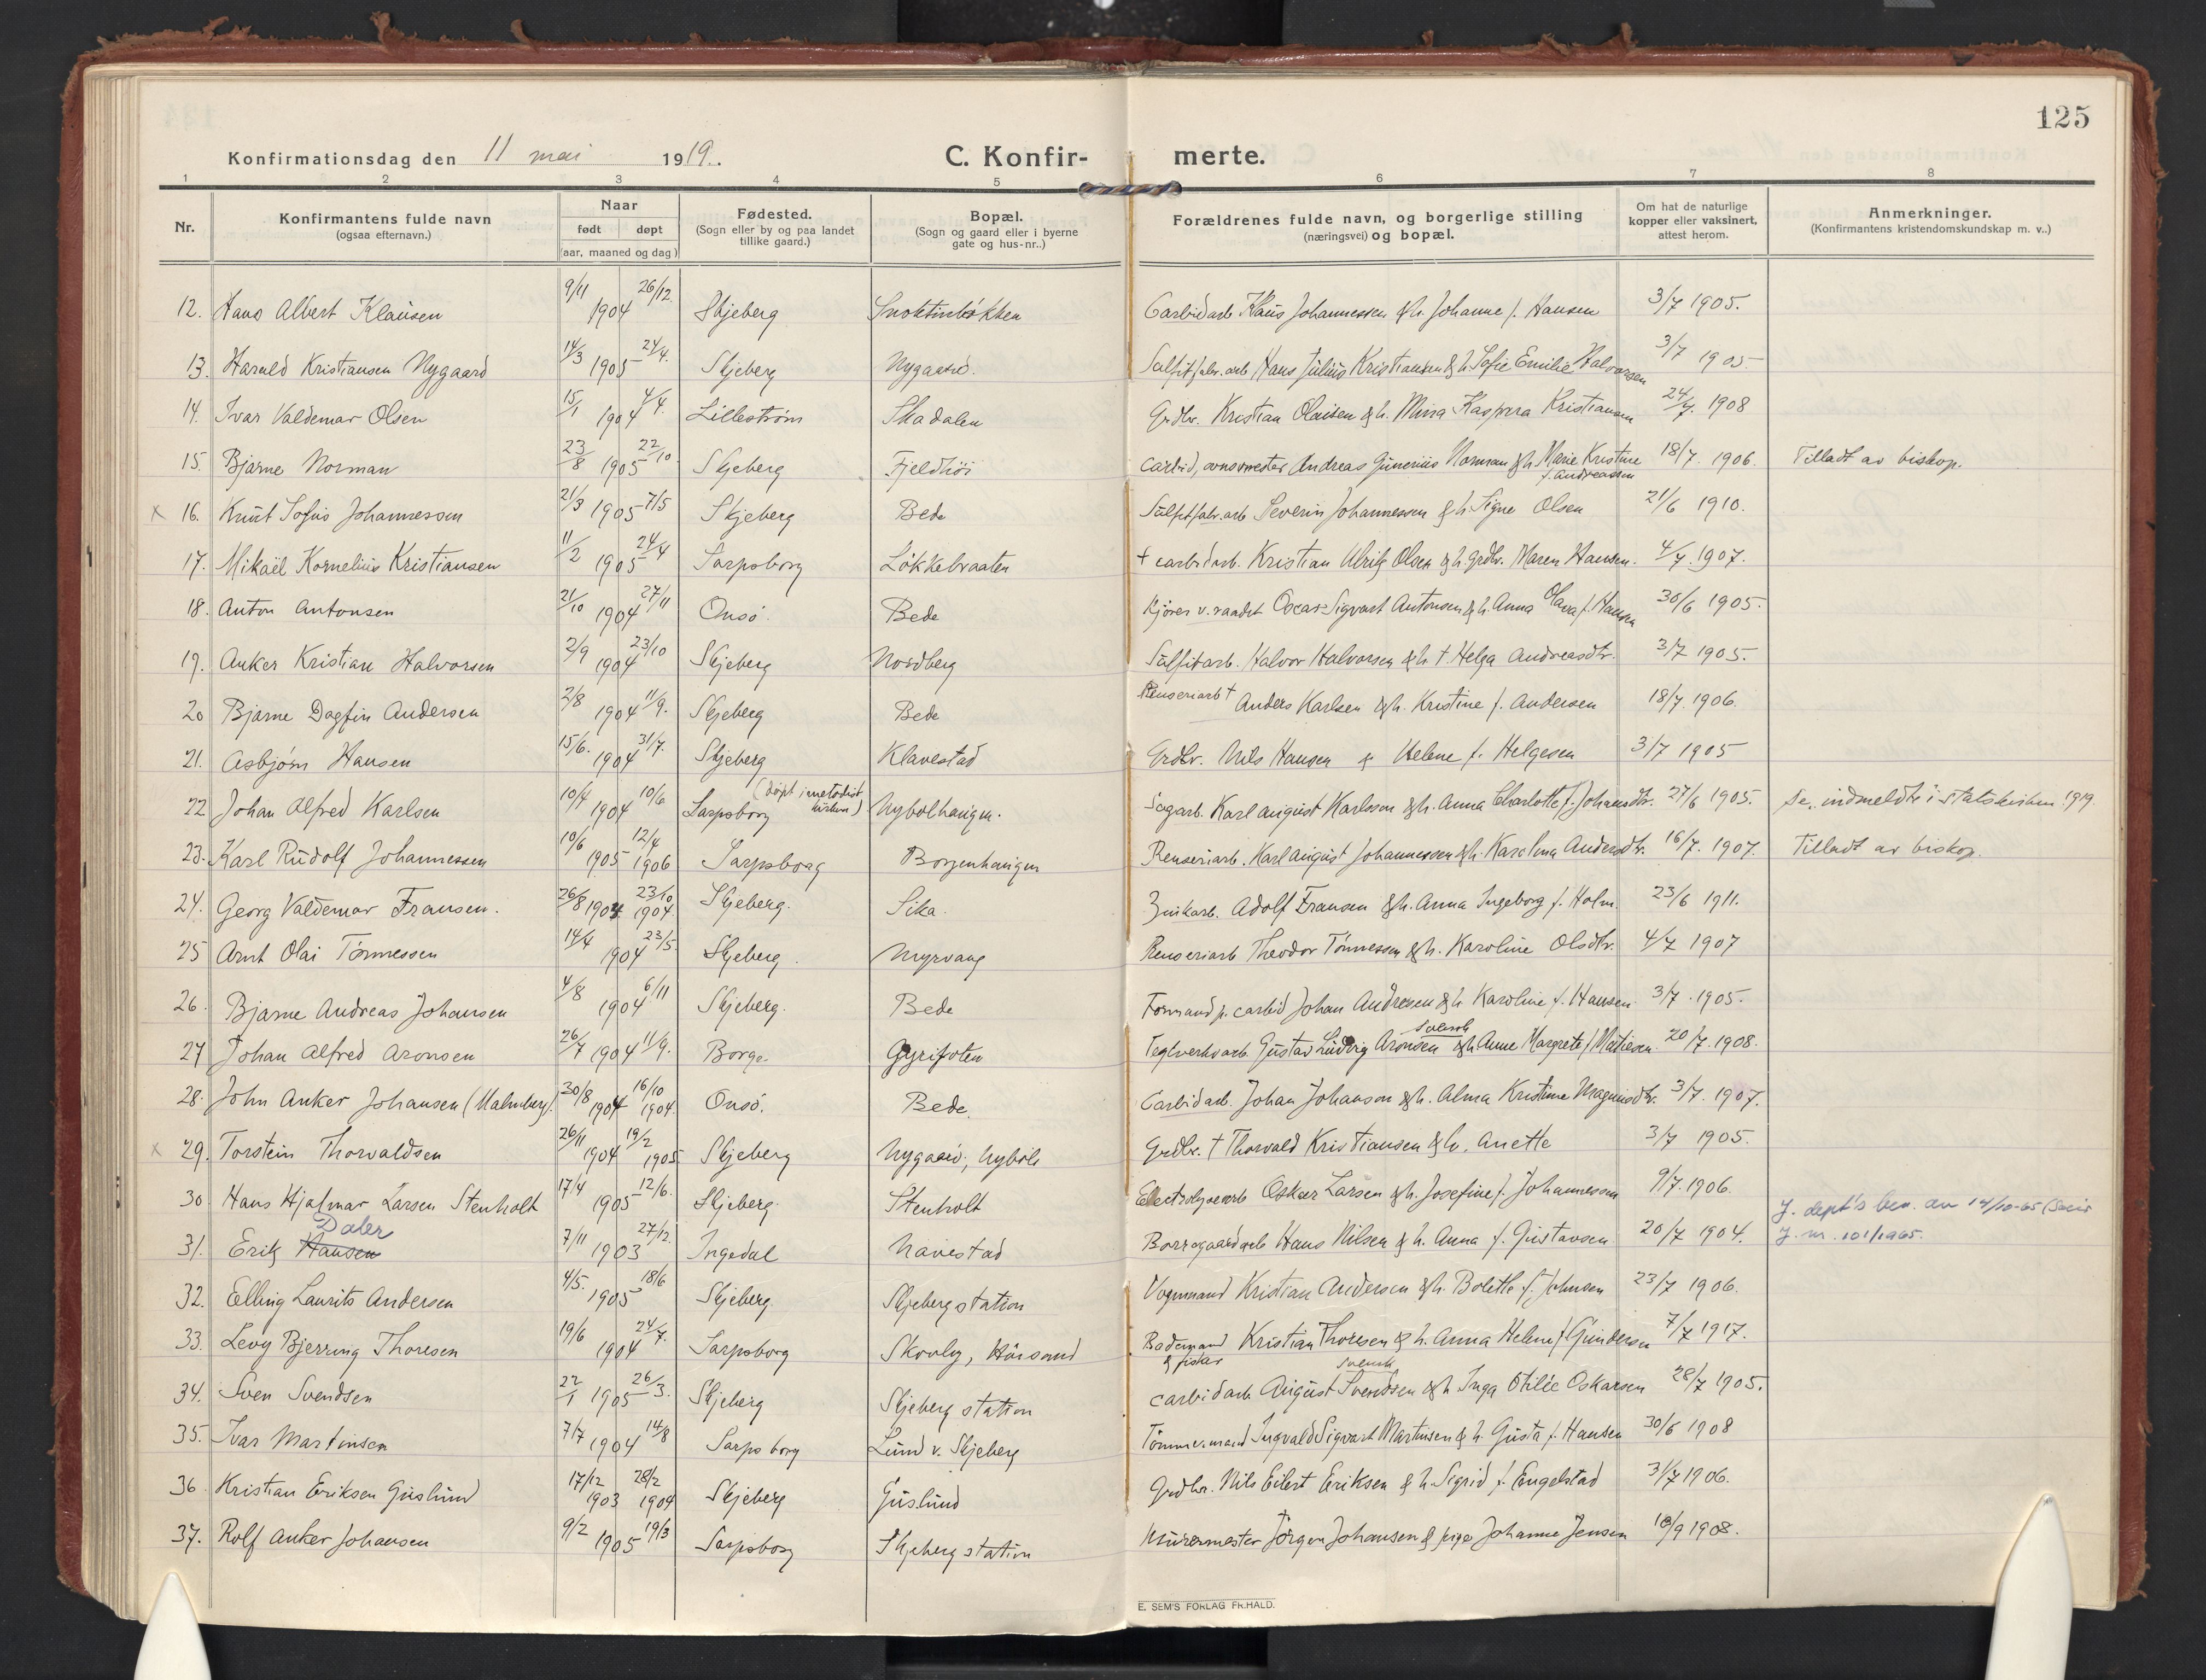 125
Konfirmationsdag den 11 mai 1919.
C. Konfir- merte.
1 2 3 4 5 6 7 8
Nr.
Konfirmantens fulde navn
(ogsaa efternavn.)
Naar
født døpt
(aar, maaned og dag)
Fødested.
(Sogn eller by og paa landet
tillike gaard.)
Bopæl.
(Sogn og gaard eller i byerne
gate og hus-nr..)
Forældrenes fulde navn, og borgerlige stilling
(næringsvei) og bopæl.
Om hat de naturlige
kopper eller vaksinert,
attest herom.
Anmerkninger.
(Konfirmantens kristendomskundskap m. v..)
12. Hans Albert Klausen 9/11 1904 26/12. Skjeberg Carbidarb Klaus Johannessen & h. Johanne f. Hansen 3/7 1905.
13. Harald Kristiansen Nygaard 14/3 1905 24/4. Skjeberg Nygaard. Sulfitfabr. arb Hans Julius Kristiansen & h. Sofie Emilie Halvorsen 3/7 1905
14. Ivar Valdemar Olsen 15/1 1904 4/4. Lilleström Skadalen Grdbr. Kristian Olaisen & h. Mina Kaspera Kristiansen 24/7. 1908
15. Bjarne Norman 23/8 1905 22/10 Skjeberg Fjeldhöi Carbid, ovnsmester Andreas Gunerius Norman & h. Marie Kristine f. Andreassen 18/7. 1906. Tilladt av biskop.
x 16. Knut Sofus Johannessen 21/3 1905 7/5 Skjeberg Bede Sulfitfabr. arb Severin Johannessen & h. Signe Olsen 21/6 1910.
17. Mikael Kornelius Kristiansen 11/2 1905 24/4 Sarpsborg Lökkebraaten + carbidarb. Kristian Ulrik Olsen & h. grdbr. Maren Hansen. 4/7. 1907.
18. Anton Antonsen 21/10 1904 27/11 Onsö. Bede Kjörer v. vandet Oscar Sigvart Antonsen & h. Anna Olava f. Hansen 30/6 1905.
19. Anker Kristian Halvorsen 2/9 1904 23/10 Skjeberg Nordberg Sulfitarb. Halvor Halvorsen & h. + Helga Andreasdtr. 3/7 1905.
20 Bjarne Dagfin Andersen 2/8 1904 11/9. Skjeberg Bede Renseriarb + Anders Karlsen & h. Kristine f. Andersen 18/7. 1906.
21. Asbjörn Hansen 15/6. 1904 31/7. Skjeberg Klavestad Grdbr. Nils Hansen & Helene f. Helgesen 3/7 1905
22 Johan Alfred Karlsen 10/4 1904 10/6 Sarpsborg (döpt i metodistkirken) Nybolhaugen. Sagarb. Karl August Karlsson & h. Anna Charlotte f. Johansdtr. 27/6 1905. indmeldt i statskirken 1919.
23. Karl Rudolf Johannessen 10/6 1905 12/4 1906 Sarpsborg Borgenhaugen Renseriarb. Karl August Johannessen & h. Karolina Andersdtr. 16/7. 1907. Tilladt av biskop.
24. Georg Valdemar Fransen. 26/8 1904 23/10 1904. Skjeberg. Sika. Zinkarb. Adolf Fransen & h. Anna Ingeborg f. Holm. 23/6 1911.
25 Arnt Olai Tönnessen 14/4 1904 23/5. Skjeberg. Myrvang Renseriarb Theodor Tönnessen & h. Karoline Olsdtr. 4/7 1907
26. Bjarne Andreas Johansen 4/8 1904 6/11 Skjeberg. Bede Formand p. carbid Johan Andresen & h. Karoline f. Hansen 3/7. 1905.
27 Johan Alfred Aronsen 26/7 1904 11/9. Borge. Teglverksarb. Gustav Ludvig Aronsen svensk & h. Anne Margrete f. Matiesen. 20/7. 1908.
28. John Anker Johansen (Malmberg). 30/8 1904 16/10 1904. Onsö. Bede. Carbidarb. Johan Johanson & h. Alma Kristine Magnusdtr. 3/7. 1907.
x 29. Torstein Thorvaldsen 26/11 1904 19/2 1905 Skjeberg Nygaard, Nyböle Grdbr. + Thorvald Kristiansen & h. Anette 3/7 1905.
30. Hans Hjalmar Larsen Stenholt 17/4 1905 12/6. Skjeberg. Stenholt Electrolysearb Oskar Larsen & h. Josefine f. Johannessen 9/7. 1906.
31. Erik Hansen Daler 7/11 1903 27/12. Ingedal Navestad Borregaardarb Hans Nilsen & h. Anna f. Gustavsen. 20/7 1904. J. dept's bev. av 14/10-65
J. nr. 101/1965.
32. Elling Laurits Andersen 4/5. 1905 18/6 Skjeberg Skjeberg station Vognmand Kristian Andersen & h. Bolette f. Johnsen 23/7 1906.
33. Levy Bjerring Thoresen 19/6 1904 24/7. Sarpsborg Skovly, Höisand Bademand & fisker Kristian Thoresen & h. Anna Helene f. Gundersen 7/7 1917.
34. Sven Svendsen 22/1 1905 26/3. Skjeberg Skjeberg station carbidarb August Svendsen svensk & h. Inga Otilie Oskarsen 28/7 1905.
35. Ivar Martinsen 7/7 1904 14/8 Sarpsborg Lund v. Skjeberg Tömmermand Ingvald Sigvart Martinsen & h. Gusta f. Hansen 30/6 1908
36. Kristian Eriksen Guslund 17/12 1903 28/2 1904 Skjeberg Guslund Grdbr. Nils Eilert Eriksen & h. Sigrid f. Engelstad 3/7 1906.
37. Rolf Anker Johansen 9/2 1905 19/3 Sarpsborg Skjeberg station Murermester + Jörgen Johansen & pige Johanne Jensen 18/9 1908.
E. SEM'S FORLAG FR.HALD.